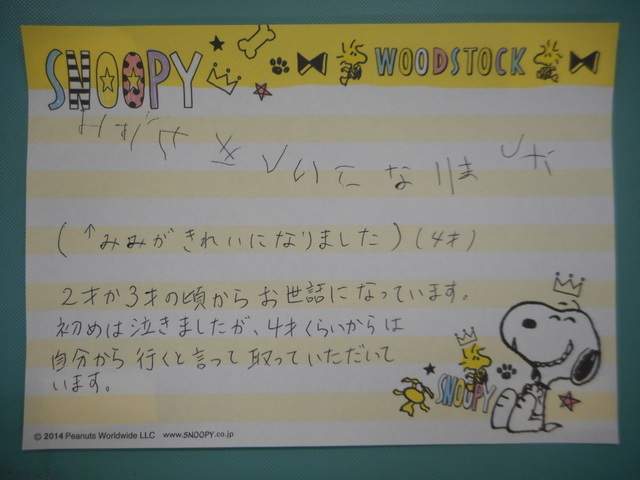 SNOOPY WOODSTOCK
みみがきれいになりました
(↑みみがきれいになりました)(4才)
2才か3才の頃からお世話になっています。
初めは泣きましたが、4才くらいからは
自分から行くと言って取っていただいて
います。
SNOOPY
© 2014 Peanuts Worldwide LLC www.SNOOPY.co.jp